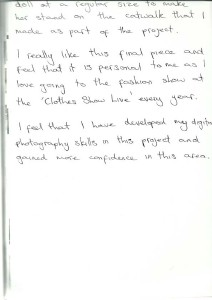 doll at a regular size to make
her stand on the catwalk that I
made as part of the project.
I really like this final piece and
feel that it is personal to me as I
love going to the fashion show at
the 'Clothes Show Live' every year.
I feel that I have developed my digital
photography skills in this project and
gained more confidence in this area.